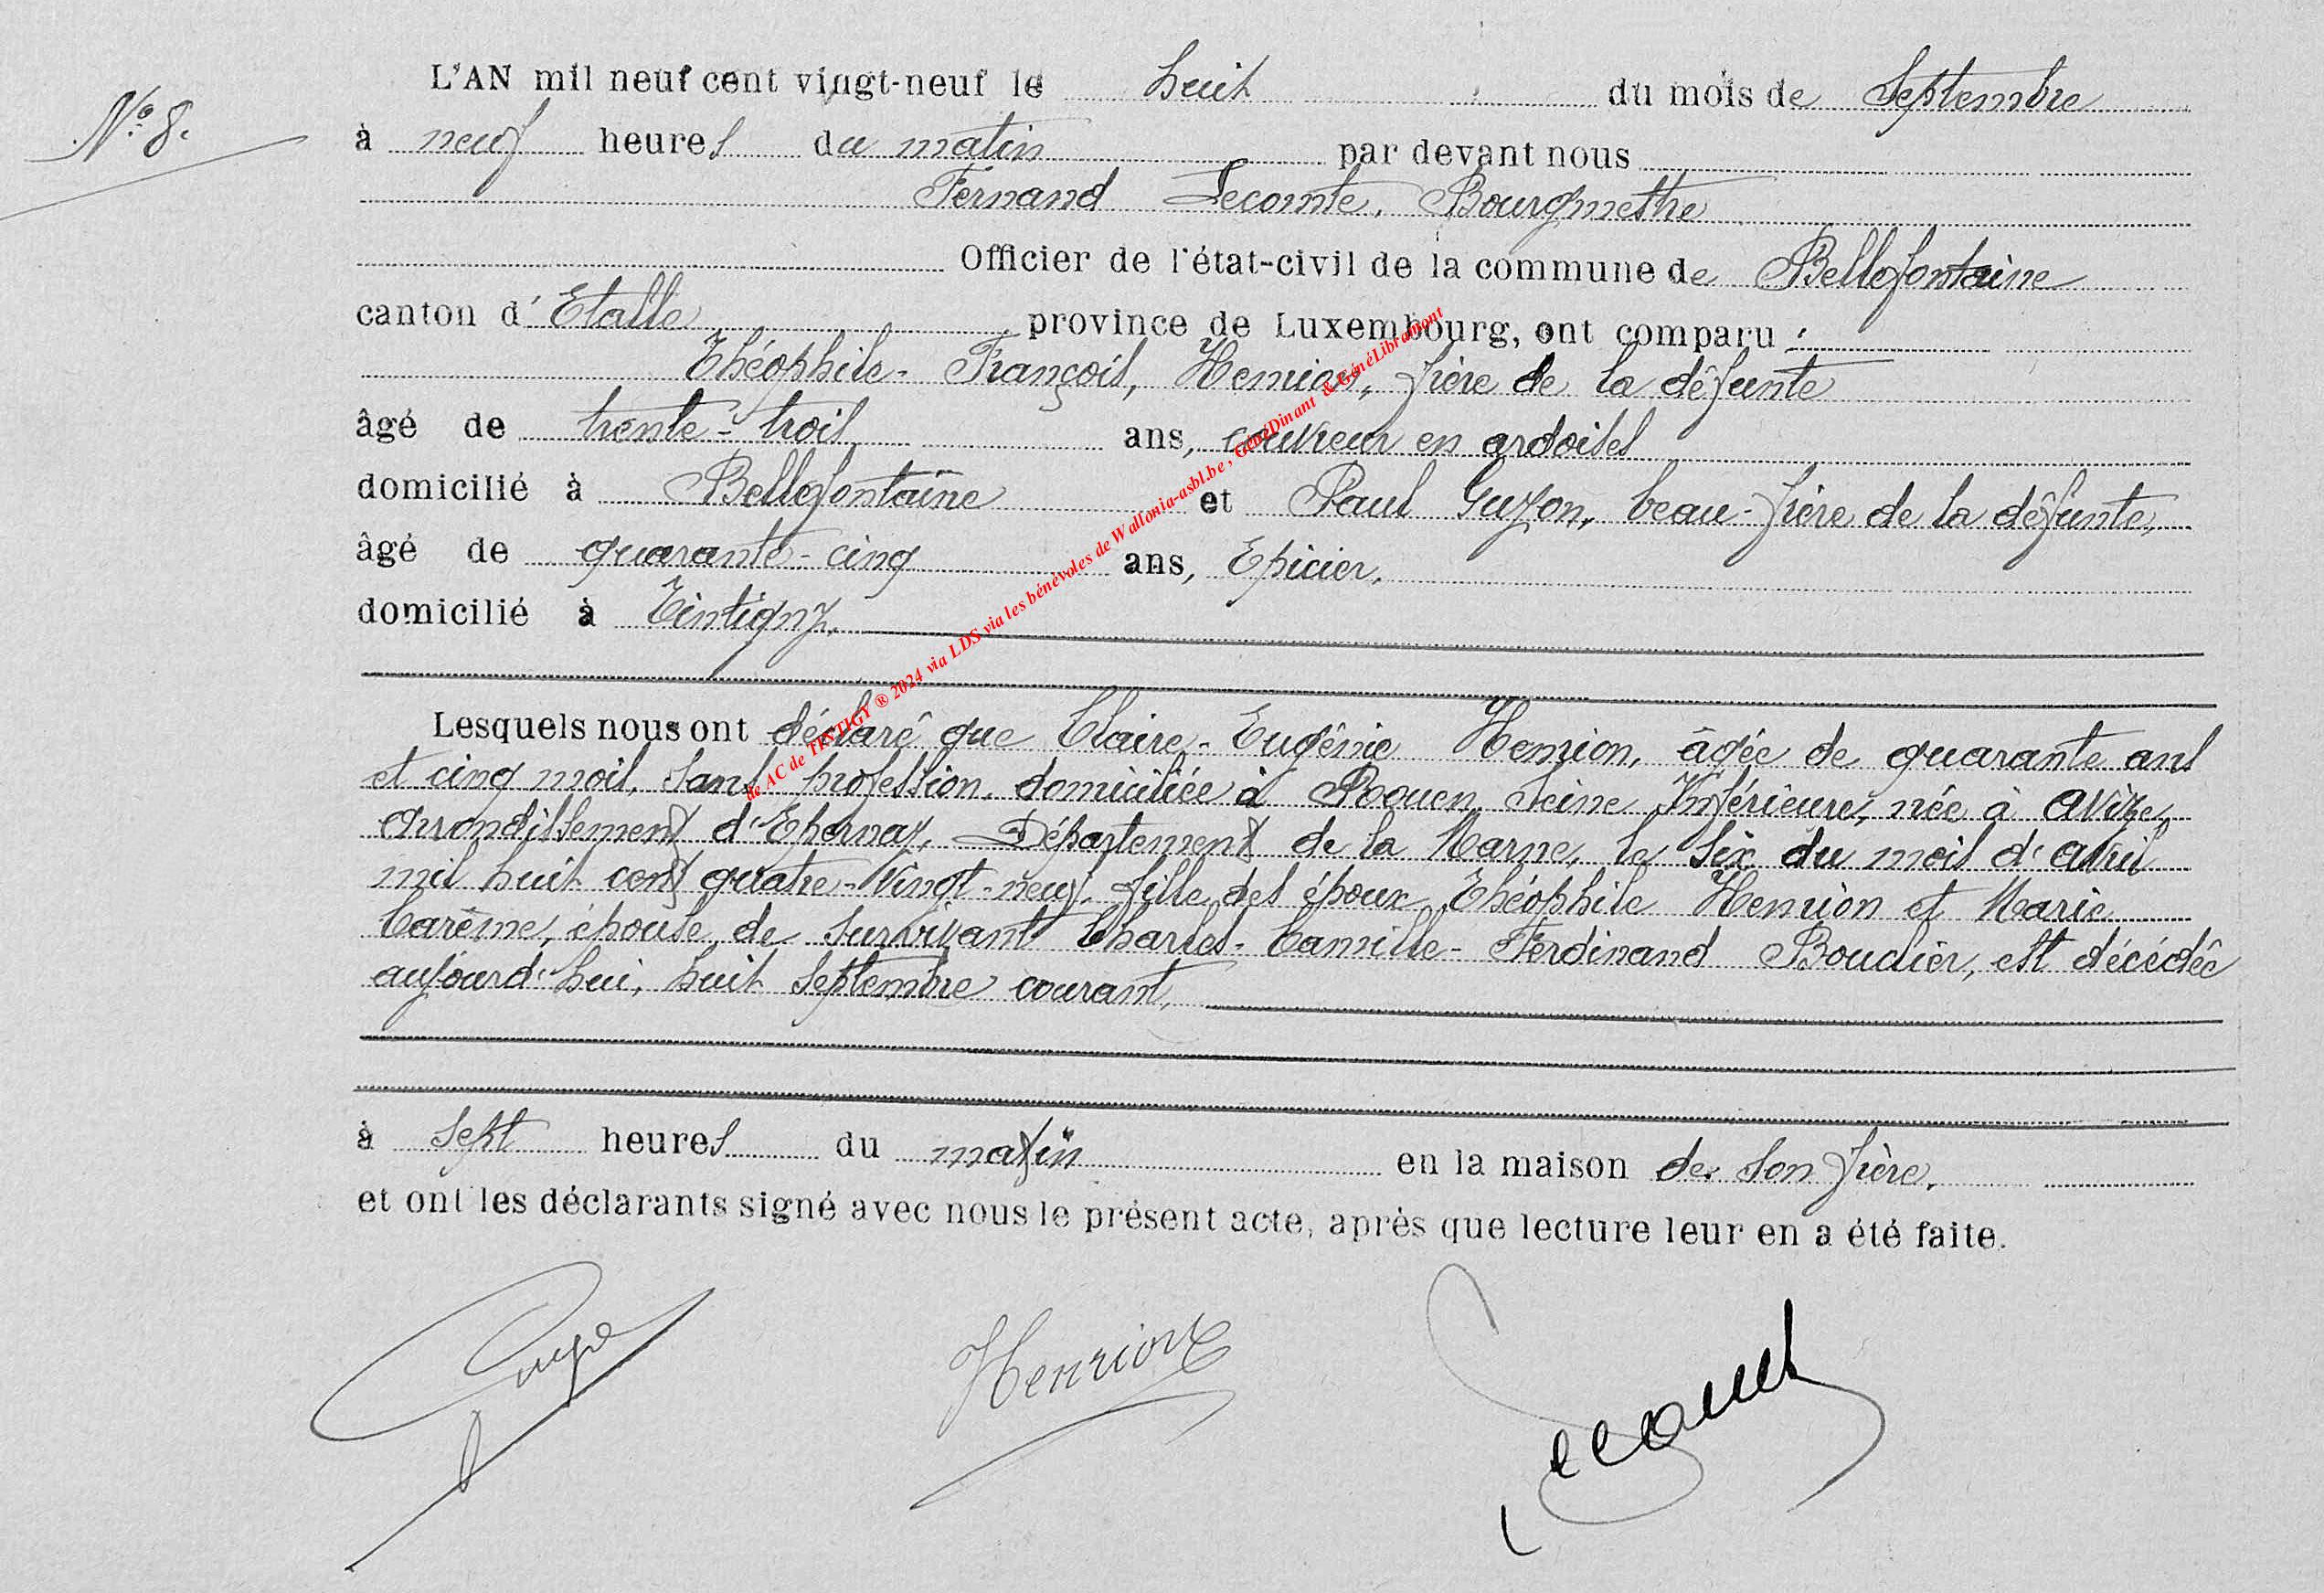 N° 8.
L'AN mil neuf cent vingt-neuf le huit du mois de Septembre
à neuf heures du matin par devant nous
Fernand Lecomte, Bourgmestre
Officier de l'état-civil de la commune de Bellefontaine
canton d'Etalle province de Luxembourg, ont comparu :
Théophile-François, Henrion, frère de la défunte
âgé de trente-trois ans, couvreur en ardoises
domicilié à Bellefontaine et Paul Guyon, beau-frère de la défunte,
âgé de quarante-cinq ans, Epicier,
domicilié à Tintigny,
Lesquels nous ont déclaré que Claire-Eugénie Henrion, âgée de quarante ans
et cinq mois, sans profession, domiciliée à Rouen, Seine Inférieure, née à Avize,
arrondissement d'Epernay, Département de la Marne, le six du mois d'avril
mil huit cent quatre-vingt-neuf, fille des époux Théophile Henrion et Marie
Carême, épouse de survivant Charles-Camille-Ferdinand Boudier, est décédée
aujourd'hui, huit septembre courant,
à sept heures du matin en la maison de son frère.
et ont les déclarants signé avec nous le présent acte, après que lecture leur en a été faite.
Henrion
de AC de TINTIGY ® 2024 via LDS via les bénévoles de Wallonia-asbl.be , GénéDinant & GénéLibramont